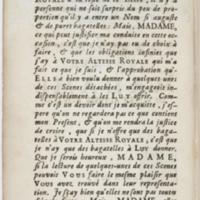 personne qui ne soit surpris du peu de pro-
portion qu'il y a entre un Nom si auguste
& de pures bagatelles: Mais, MADAME,
ce qui peut justifier ma conduite en cette oc-
casion, c'est que je n'ay pas eu de choix à
faire, & que les obligations infinies que
j'ay à VOTRE ALTESSE ROYALE qui m'a
fait ce que je suis, & l'approbation qu'-
ELLE a bien voulu donner à quelques unes
de ces Scenes détachées, m'engageoit in-
dispensablement à les LUY offrir. Com-
me c'est un devoir dont je m'acquitte, j'espe-
re qu'on ne regardera pas ce que contient
mon Present, & qu'on me rendra la justice
de croire, que si je n'offre que des baga-
telles à VOTRE ALTESSE ROYALE, c'est que
je n'ay que des bagatelles à LUY donner.
Que je serois heureux, MADAME,
si la lecture de quelques-unes de ces Scenes
pouvoit VOUS faire le mesme plaisir que
VOUS avez trouvé dans leur represen-
tation. Je sçay bien qu'elles ne sont pas toutes